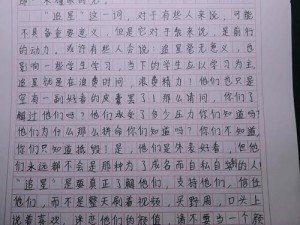 "追星"这一词，对于有些人来说，可能
不具备重要意义，但是它对于我来说，是前行
的动力，或许有些人会说：追星毫无意义，也
影响一些学生学习，当下的学生应以学习为主，
追星就是在浪费时间，浪费精力！他们也只是
空有一副好看的皮囊罢了！那么请问，你们了
解过他们吗？他们承受了多少压力你们知道吗？
他们为什么那么拼命你们知道吗？你们不知道，
你们只知道搞毁！是，他们是外表好看，但他
们永远都不会是那种为了成名而自私自利的人！
"追星"是要真正了解他们，支持他们，信任
他们，而不是整天刷着视频，买野周，口头上
说着喜欢，迷恋他们的颜值，请不要当一个颜